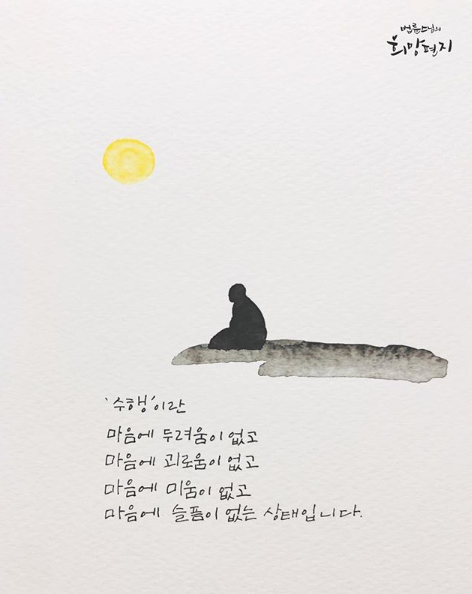 법륜스님의
희망편지
'수행'이란
마음에 두려움이 없고
마음에 괴로움이 없고
마음에 미움이 없고
마음에 슬픔이 없는 상태입니다.